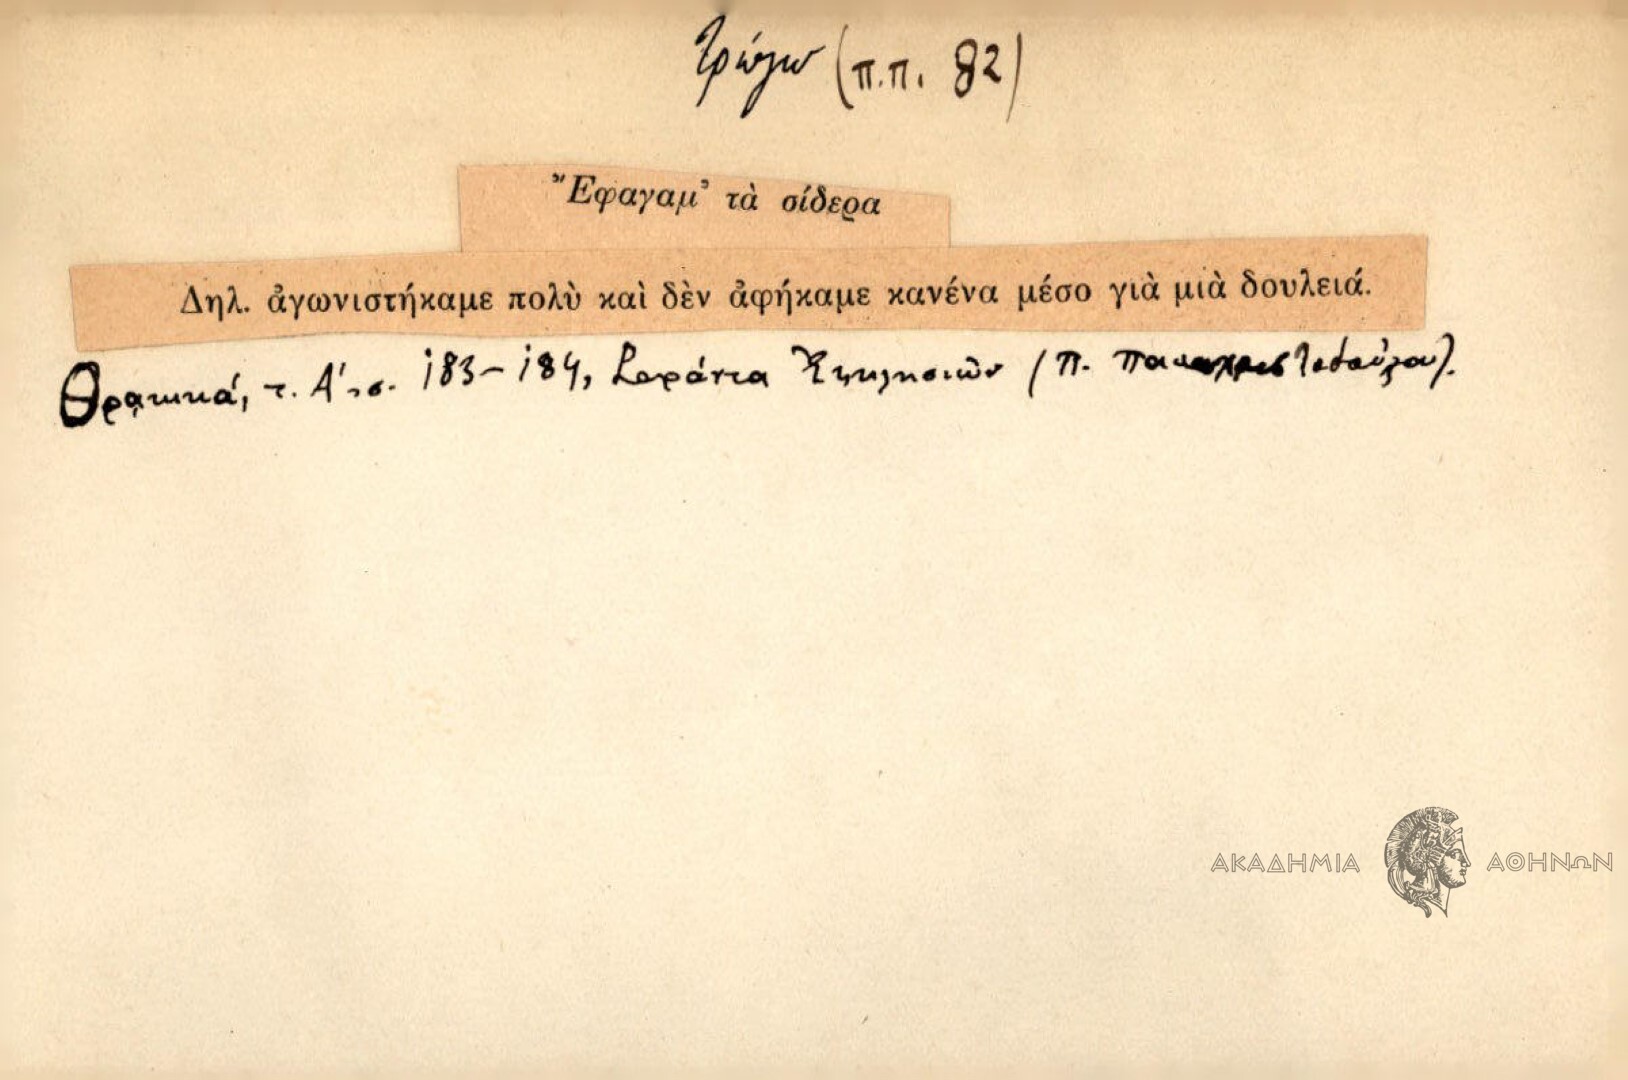 τρώγω (π.π. 82)
Ἔφαγαμ᾽ τὰ σίδερα
Δηλ. ἀγωνιστήκαμε πολὺ καὶ δὲν ἀφήκαμε κανένα μέσο γιὰ μιὰ δουλειά.
Θρακικά, τ. Α΄, σ. 183-184, Σαράντα Ἐκκλησιῶν (Π. Παπαχριστοδούλου).
ΑΚΑΔΗΜΙΑ ΑΘΗΝΩΝ